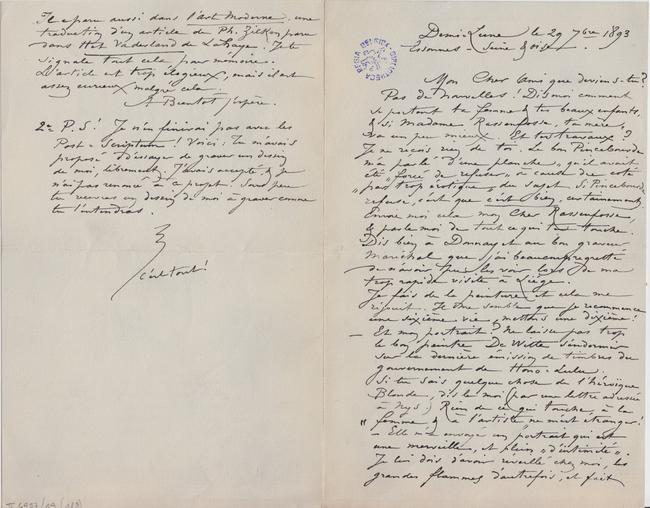 Il a paru aussi dans l'art Moderne, une
traduction d'un article de Ph. Zilken, paru
dans Het Vaderland de La Haye. Je te
signale tout cela pour mémoire.
L'article est trop élogieux, mais il est
assez curieux malgré cela.
A Bientot j'espère.
2me P.S! Je n'en finirai pas avec les
Post-Scriptum! Voici: Tu m'avais
proposé d'essayer de graver un dessin
de moi, librement. J'avais accepté, & je
n'ai pas renoncé à ce projet. Sous peu
tu recevras un dessin de moi à graver comme
tu l'entendras.
c'est tout!
Demi-Lune le 29 7bre 1893
Essonnes - Seine & Oise
BIBLIOTHECA REGIA BELGICA
Mon Cher Ami que deviens-tu?
Pas de nouvelles! Dis moi comment
se portent ta femme & tes beaux enfants,
& si Madame Rassenfosse, ta mère,
va un peu mieux. Et tes travaux?
Je ne reçois rien de toi. Le bon Pincebourde
m'a parlé d'une planche „qu'il avait
été „forcé de refuser" à cause du côté
„par trop érotique„ du sujet. Si Pincebourde
refuse, c'est que c'est bien, certainement.
Envoie moi cela mon Cher Rassenfosse,
& parle moi de tout ce qui te touche.
Dis bien à Donnay et au bon graveur
Maréchal que j'ai beaucoup regretté
de n'avoir pu les voir lors de ma
trop rapide visite à Liège.
Je fais de la peinture et cela me
réjouit. Il me semble que je recommence
une sixième vie, mettons une dixième!
— Et mon portrait? Ne laisse pas trop
le bon peintre De Witte s'endormir
sur la dernière émission de timbres du
gouvernement de Hono-Lulu.
Si tu sais quelque chose de l'héroïque
Blonde, dis le moi (par une lettre adressée
à Nys.) Rien de ce qui touche, à la
„femme„ & à l'artiste ne m'est étranger!
— Elle m'a envoyé un portrait qui est
une merveille, et plein „d'intimité".
Je lui dois d'avoir réveillé chez moi, les
grandes flammes d'autrefois, et fait